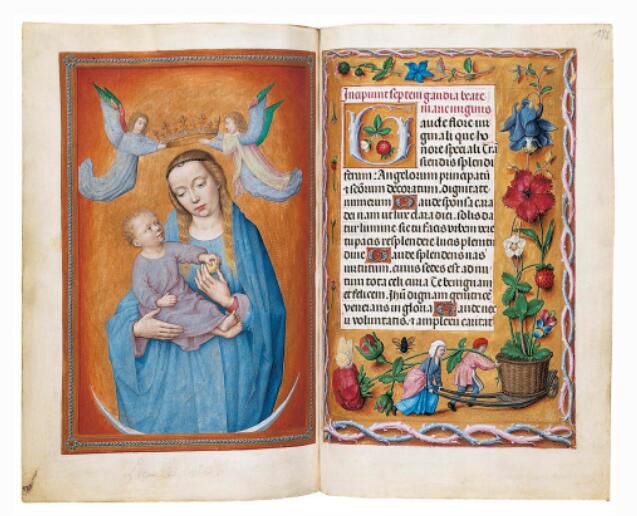 Incipiunt septem gaudia beate
marie virginis
Gaude flore vir
ginali que ho
nore speciali Trã
scendis splendi
ferum : Angelorum principatũ
⁊ scõrum decoratum, dignitate
numerum Gaude sponsa cara
dei nam ut lux clara diei, solis da
tur lumine sic tu facis orbem vere
tue pacis resplendere lucis plenitu
dine Gaude splendens vas
virtutum, cuius sedes est ad nu
tum tota celi curia Te benignam
et felicem, Jhũ dignam genitricẽ
venerans in gloria Gaude nex
u voluntatis, ⁊ amplexu caritat